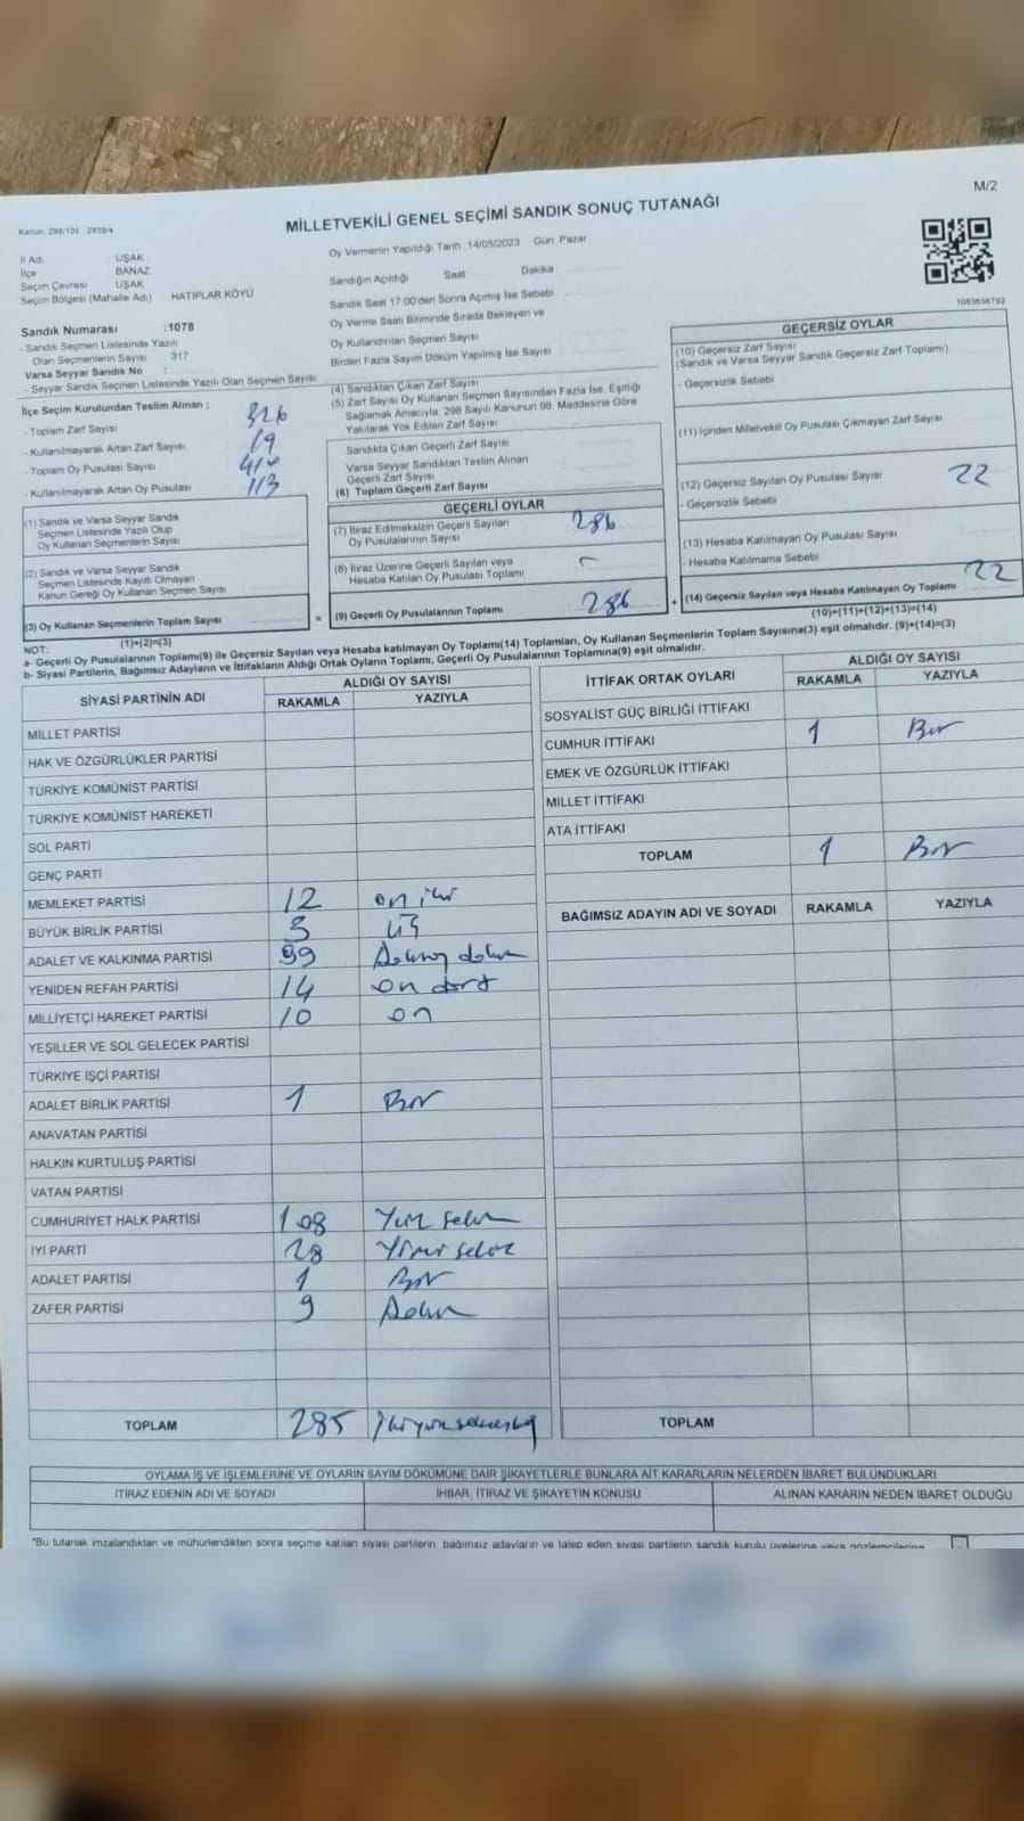 M/2
MİLLETVEKİLİ GENEL SEÇİMİ SANDIK SONUÇ TUTANAĞI
Oy Vermenin Yapıldığı Tarih :14/05/2023 Gün: Pazar
İl Adı UŞAK
İlçe BANAZ
Seçim Çevresi UŞAK
Seçim Bölgesi (Mahalle Adı) HATIPLAR KÖYÜ
Sandığın Açıldığı Saat Dakika
Sandık Saat 17:00'den Sonra Açılmış İse Sebebi
Oy Verme Saati Bitiminde Sırada Bekleyen ve
Oy Kullandırılan Seçmen Sayısı
Birden Fazla Sayım Döküm Yapılmış İse Sayısı
Sandık Numarası :1078
- Sandık Seçmen Listesinde Yazılı
Olan Seçmenlerin Sayısı 317
Varsa Seyyar Sandık No :
- Seyyar Sandık Seçmen Listesinde Yazılı Olan Seçmen Sayısı
İlçe Seçim Kurulundan Teslim Alınan :
- Toplam Zarf Sayısı 326
- Kullanılmayarak Artan Zarf Sayısı 19
- Toplam Oy Pusulası Sayısı
- Kullanılmayarak Artan Oy Pusulası 113
(1) Sandık ve Varsa Seyyar Sandık
Seçmen Listesinde Yazılı Olup
Oy Kullanan Seçmenlerin Sayısı
(2) Sandık ve Varsa Seyyar Sandık
Seçmen Listesinde Kayıtlı Olmayan
Kanun Gereği Oy Kullanan Seçmen Sayısı
(3) Oy Kullanan Seçmenlerin Toplam Sayısı
(1)+(2)=(3)
(4) Sandıktan Çıkan Zarf Sayısı
(5) Zarf Sayısı Oy Kullanan Seçmen Sayısından Fazla İse, Eşitliği
Sağlamak Amacıyla, 298 Sayılı Kanunun 98. Maddesine Göre
Yakılarak Yok Edilen Zarf Sayısı
Sandıkta Çıkan Geçerli Zarf Sayısı
Varsa Seyyar Sandıktan Teslim Alınan
Geçerli Zarf Sayısı
(6) Toplam Geçerli Zarf Sayısı
GEÇERLİ OYLAR
(7) İtiraz Edilmeksizin Geçerli Sayılan
Oy Pusulalarının Sayısı 286
(8) İtiraz Üzerine Geçerli Sayılan veya
Hesaba Katılan Oy Pusulası Toplamı
= (9) Geçerli Oy Pusulalarının Toplamı 286
GEÇERSİZ OYLAR
(10) Geçersiz Zarf Sayısı
(Sandık ve Varsa Seyyar Sandık Geçersiz Zarf Toplamı)
- Geçersizlik Sebebi
(11) İçinden Milletvekili Oy Pusulası Çıkmayan Zarf Sayısı
(12) Geçersiz Sayılan Oy Pusulası Sayısı 22
- Geçersizlik Sebebi
(13) Hesaba Katılmayan Oy Pusulası Sayısı
- Hesaba Katılmama Sebebi
+ (14) Geçersiz Sayılan veya Hesaba Katılmayan Oy Toplamı 22
(10)+(11)+(12)+(13)=(14)
NOT:
a- Geçerli Oy Pusulalarının Toplamı(9) ile Geçersiz Sayılan veya Hesaba katılmayan Oy Toplamı(14) Toplamları, Oy Kullanan Seçmenlerin Toplam Sayısına(3) eşit olmalıdır. (9)+(14)=(3)
b- Siyasi Partilerin, Bağımsız Adayların ve İttifakların Aldığı Ortak Oyların Toplamı, Geçerli Oy Pusulalarının Toplamına(9) eşit olmalıdır.
SİYASİ PARTİNİN ADI ALDIĞI OY SAYISI
RAKAMLA YAZIYLA
MİLLET PARTİSİ
HAK VE ÖZGÜRLÜKLER PARTİSİ
TÜRKİYE KOMÜNİST PARTİSİ
TÜRKİYE KOMÜNİST HAREKETİ
SOL PARTİ
GENÇ PARTİ
MEMLEKET PARTİSİ 12 on iki
BÜYÜK BİRLİK PARTİSİ 3 üç
ADALET VE KALKINMA PARTİSİ 99
YENİDEN REFAH PARTİSİ 14 on dört
MİLLİYETÇİ HAREKET PARTİSİ 10 on
YEŞİLLER VE SOL GELECEK PARTİSİ
TÜRKİYE İŞÇİ PARTİSİ
ADALET BİRLİK PARTİSİ 1 Bir
ANAVATAN PARTİSİ
HALKIN KURTULUŞ PARTİSİ
VATAN PARTİSİ
CUMHURİYET HALK PARTİSİ 108 Yüz sekiz
İYİ PARTİ 28 Yirmi sekiz
ADALET PARTİSİ 1 Bir
ZAFER PARTİSİ 9 Dokuz
TOPLAM 285
İTTİFAK ORTAK OYLARI ALDIĞI OY SAYISI
RAKAMLA YAZIYLA
SOSYALİST GÜÇ BİRLİĞİ İTTİFAKI
CUMHUR İTTİFAKI 1 Bir
EMEK VE ÖZGÜRLÜK İTTİFAKI
MİLLET İTTİFAKI
ATA İTTİFAKI
TOPLAM 1 Bir
BAĞIMSIZ ADAYIN ADI VE SOYADI RAKAMLA YAZIYLA
TOPLAM
OYLAMA İŞ VE İŞLEMLERİNE VE OYLARIN SAYIM DÖKÜMÜNE DAİR ŞİKAYETLERLE BUNLARA AİT KARARLARIN NELERDEN İBARET BULUNDUKLARI
İTİRAZ EDENİN ADI VE SOYADI İHBAR, İTİRAZ VE ŞİKAYETİN KONUSU ALINAN KARARIN NEDEN İBARET OLDUĞU
"Bu tutanak imzalandıktan ve mühürlendikten sonra seçime katılan siyasi partilerin, bağımsız adayların ve talep eden siyasi partilerin sandık kurulu üyelerine veya gözlemcilerine